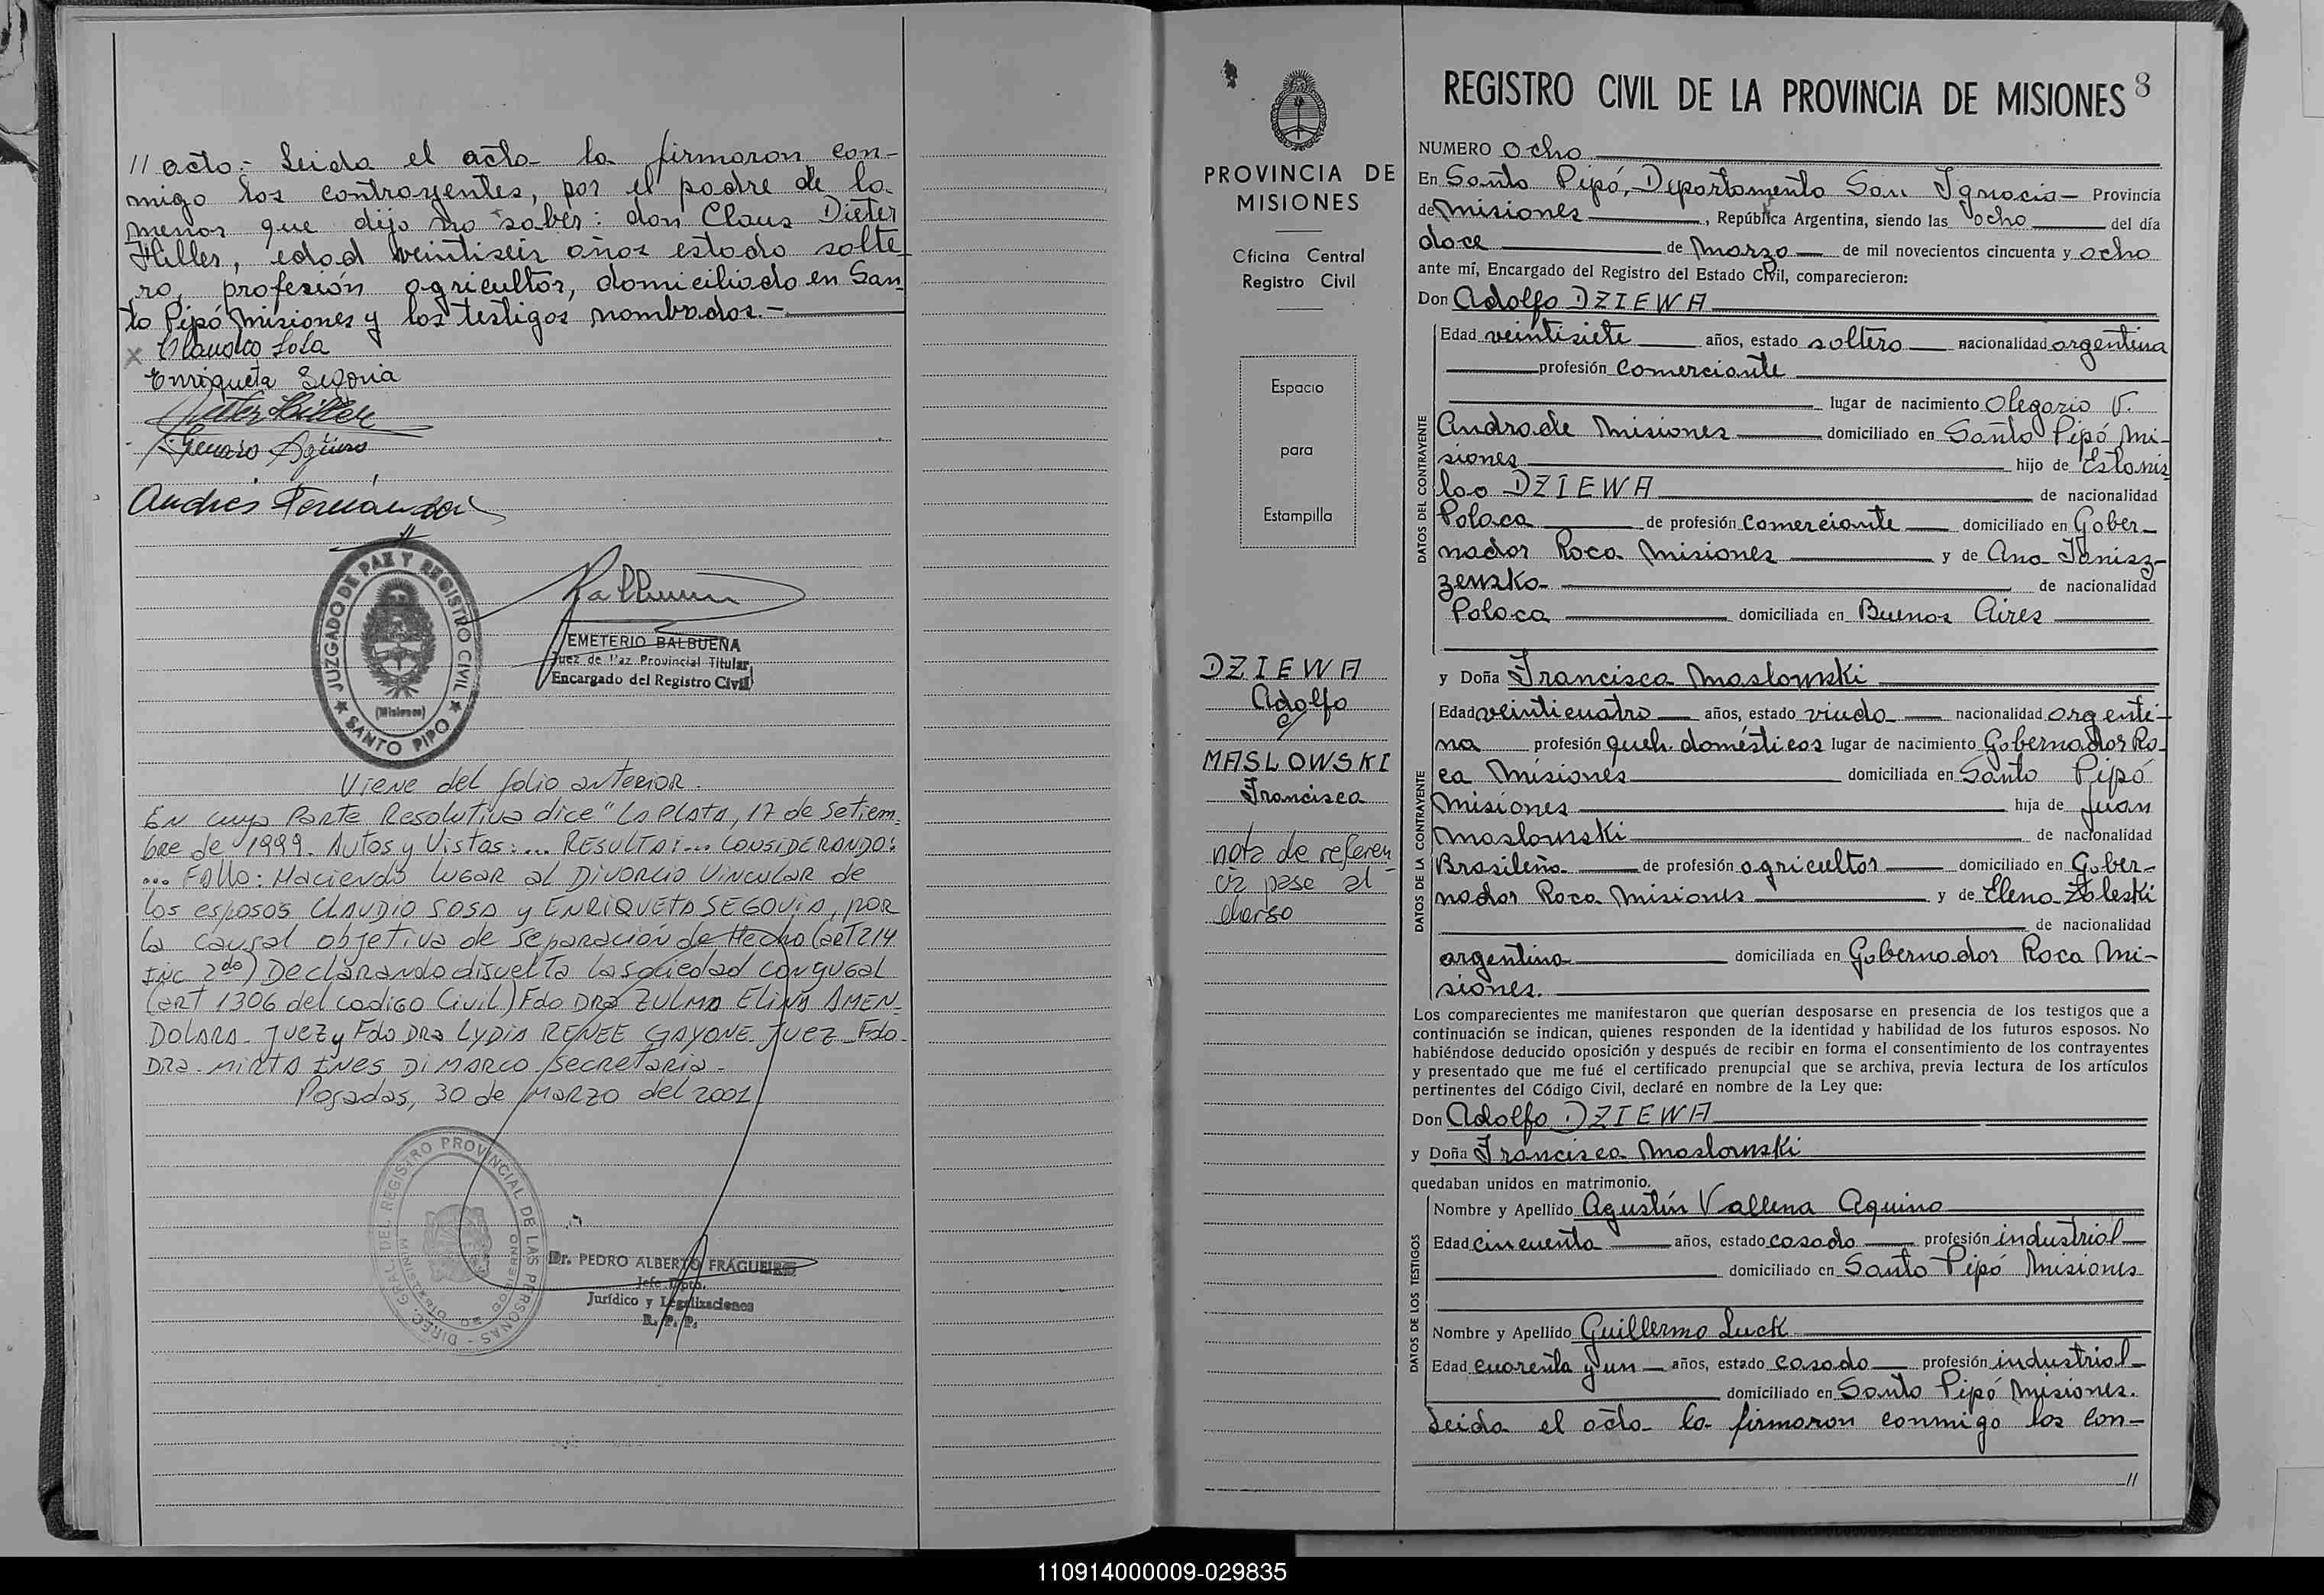 // acto.- Leida el acta la firmaron con-
migo los contrayentes, por el padre de la
menor que dijo no saber: don Claus Dieter
Hiller, edad veintiseis años estado solte
ro, profesión agricultor, domiciliado en San
to Pipó Misiones y los testigos nombrados.-
x Claudio Sosa
Enriqueta Segovia
Dieter Hiller
Genaro Agüero
Andrés Fernández
JUZGADO DE PAZ Y REGISTRO CIVIL
(Misiones)
SANTO PIPO
EMETERIO BALBUENA
Juez de Paz Provincial Titular
Encargado del Registro Civil
Viene del folio anterior.
En cuya Parte Resolutiva dice "LA PLATA, 17 de Setiem-
bre de 1999. Autos y Vistos:... RESULTA:... CONSIDERANDO:
... Fallo: Haciendo lugar al Divorcio Vincular de
los esposos CLAUDIO SOSA y ENRIQUETA SEGOVIA, por
la causal objetiva de separación de Hecho (art 214
inc 2do) Declarando disuelta la sociedad conyugal
(art 1306 del codigo Civil) Fdo Dra ZULMA ELINA AMEN-
DOLARA. Juez y Fdo Dra LYDIA RENEE GAYONE Juez Fdo.
Dra. MIRTA INES DI MARCO Secretaria.
Posadas, 30 de Marzo del 2001
DIREC. GRAL. DEL REGISTRO PROVINCIAL DE LAS PERSONAS
Dr. PEDRO ALBERTO FRAGUEIRO
Jefe Dpto.
Jurídico y Legalizaciones
R. P. P.
PROVINCIA DE
MISIONES
Oficina Central
Registro Civil
Espacio
para
Estampilla
DZIEWA
Adolfo
c/
MASLOWSKI
Francisca
nota de referen
cia pase al
dorso
REGISTRO CIVIL DE LA PROVINCIA DE MISIONES 8
NUMERO Ocho
En Santo Pipó, Departamento San Ignacio- Provincia
de Misiones, República Argentina, siendo las ocho del día
doce de Marzo de mil novecientos cincuenta y ocho
ante mí, Encargado del Registro del Estado Civil, comparecieron:
Don Adolfo DZIEWA
DATOS DEL CONTRAYENTE
Edad veintisiete años, estado soltero nacionalidad argentina
profesión Comerciante
lugar de nacimiento Olegario V.
Andrade Misiones domiciliado en Santo Pipó Mi-
siones hijo de Estanis
lao DZIEWA de nacionalidad
Polaca de profesión comerciante domiciliado en Gober-
nador Roca Misiones y de Ana Janisz-
zewska de nacionalidad
Polaca domiciliada en Buenos Aires
y Doña Francisca Maslowski
DATOS DE LA CONTRAYENTE
Edad veinticuatro años, estado viuda nacionalidad argenti-
na profesión queh. domésticos lugar de nacimiento Gobernador Ro-
ca Misiones domiciliada en Santo Pipó
Misiones hija de Juan
Maslowski de nacionalidad
Brasileña de profesión agricultor domiciliado en Gober-
nador Roca Misiones y de Elena Zaleski
de nacionalidad
argentina domiciliada en Gobernador Roca Mi-
siones.
Los comparecientes me manifestaron que querían desposarse en presencia de los testigos que a
continuación se indican, quienes responden de la identidad y habilidad de los futuros esposos. No
habiéndose deducido oposición y después de recibir en forma el consentimiento de los contrayentes
y presentado que me fué el certificado prenupcial que se archiva, previa lectura de los artículos
pertinentes del Código Civil, declaré en nombre de la Ley que:
Don Adolfo DZIEWA
y Doña Francisca Maslowski
quedaban unidos en matrimonio.
DATOS DE LOS TESTIGOS
Nombre y Apellido Agustín Vallena Aquino
Edad cincuenta años, estado casado profesión industrial
domiciliado en Santo Pipó Misiones
Nombre y Apellido Guillermo Luck
Edad cuarenta y un años, estado casado profesión industrial
domiciliado en Santo Pipó Misiones.
Leida el acta la firmaron conmigo los con-
//
110914000009-029835